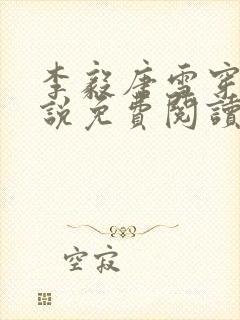 李毅唐雪穿
說免費閱讀
空寂